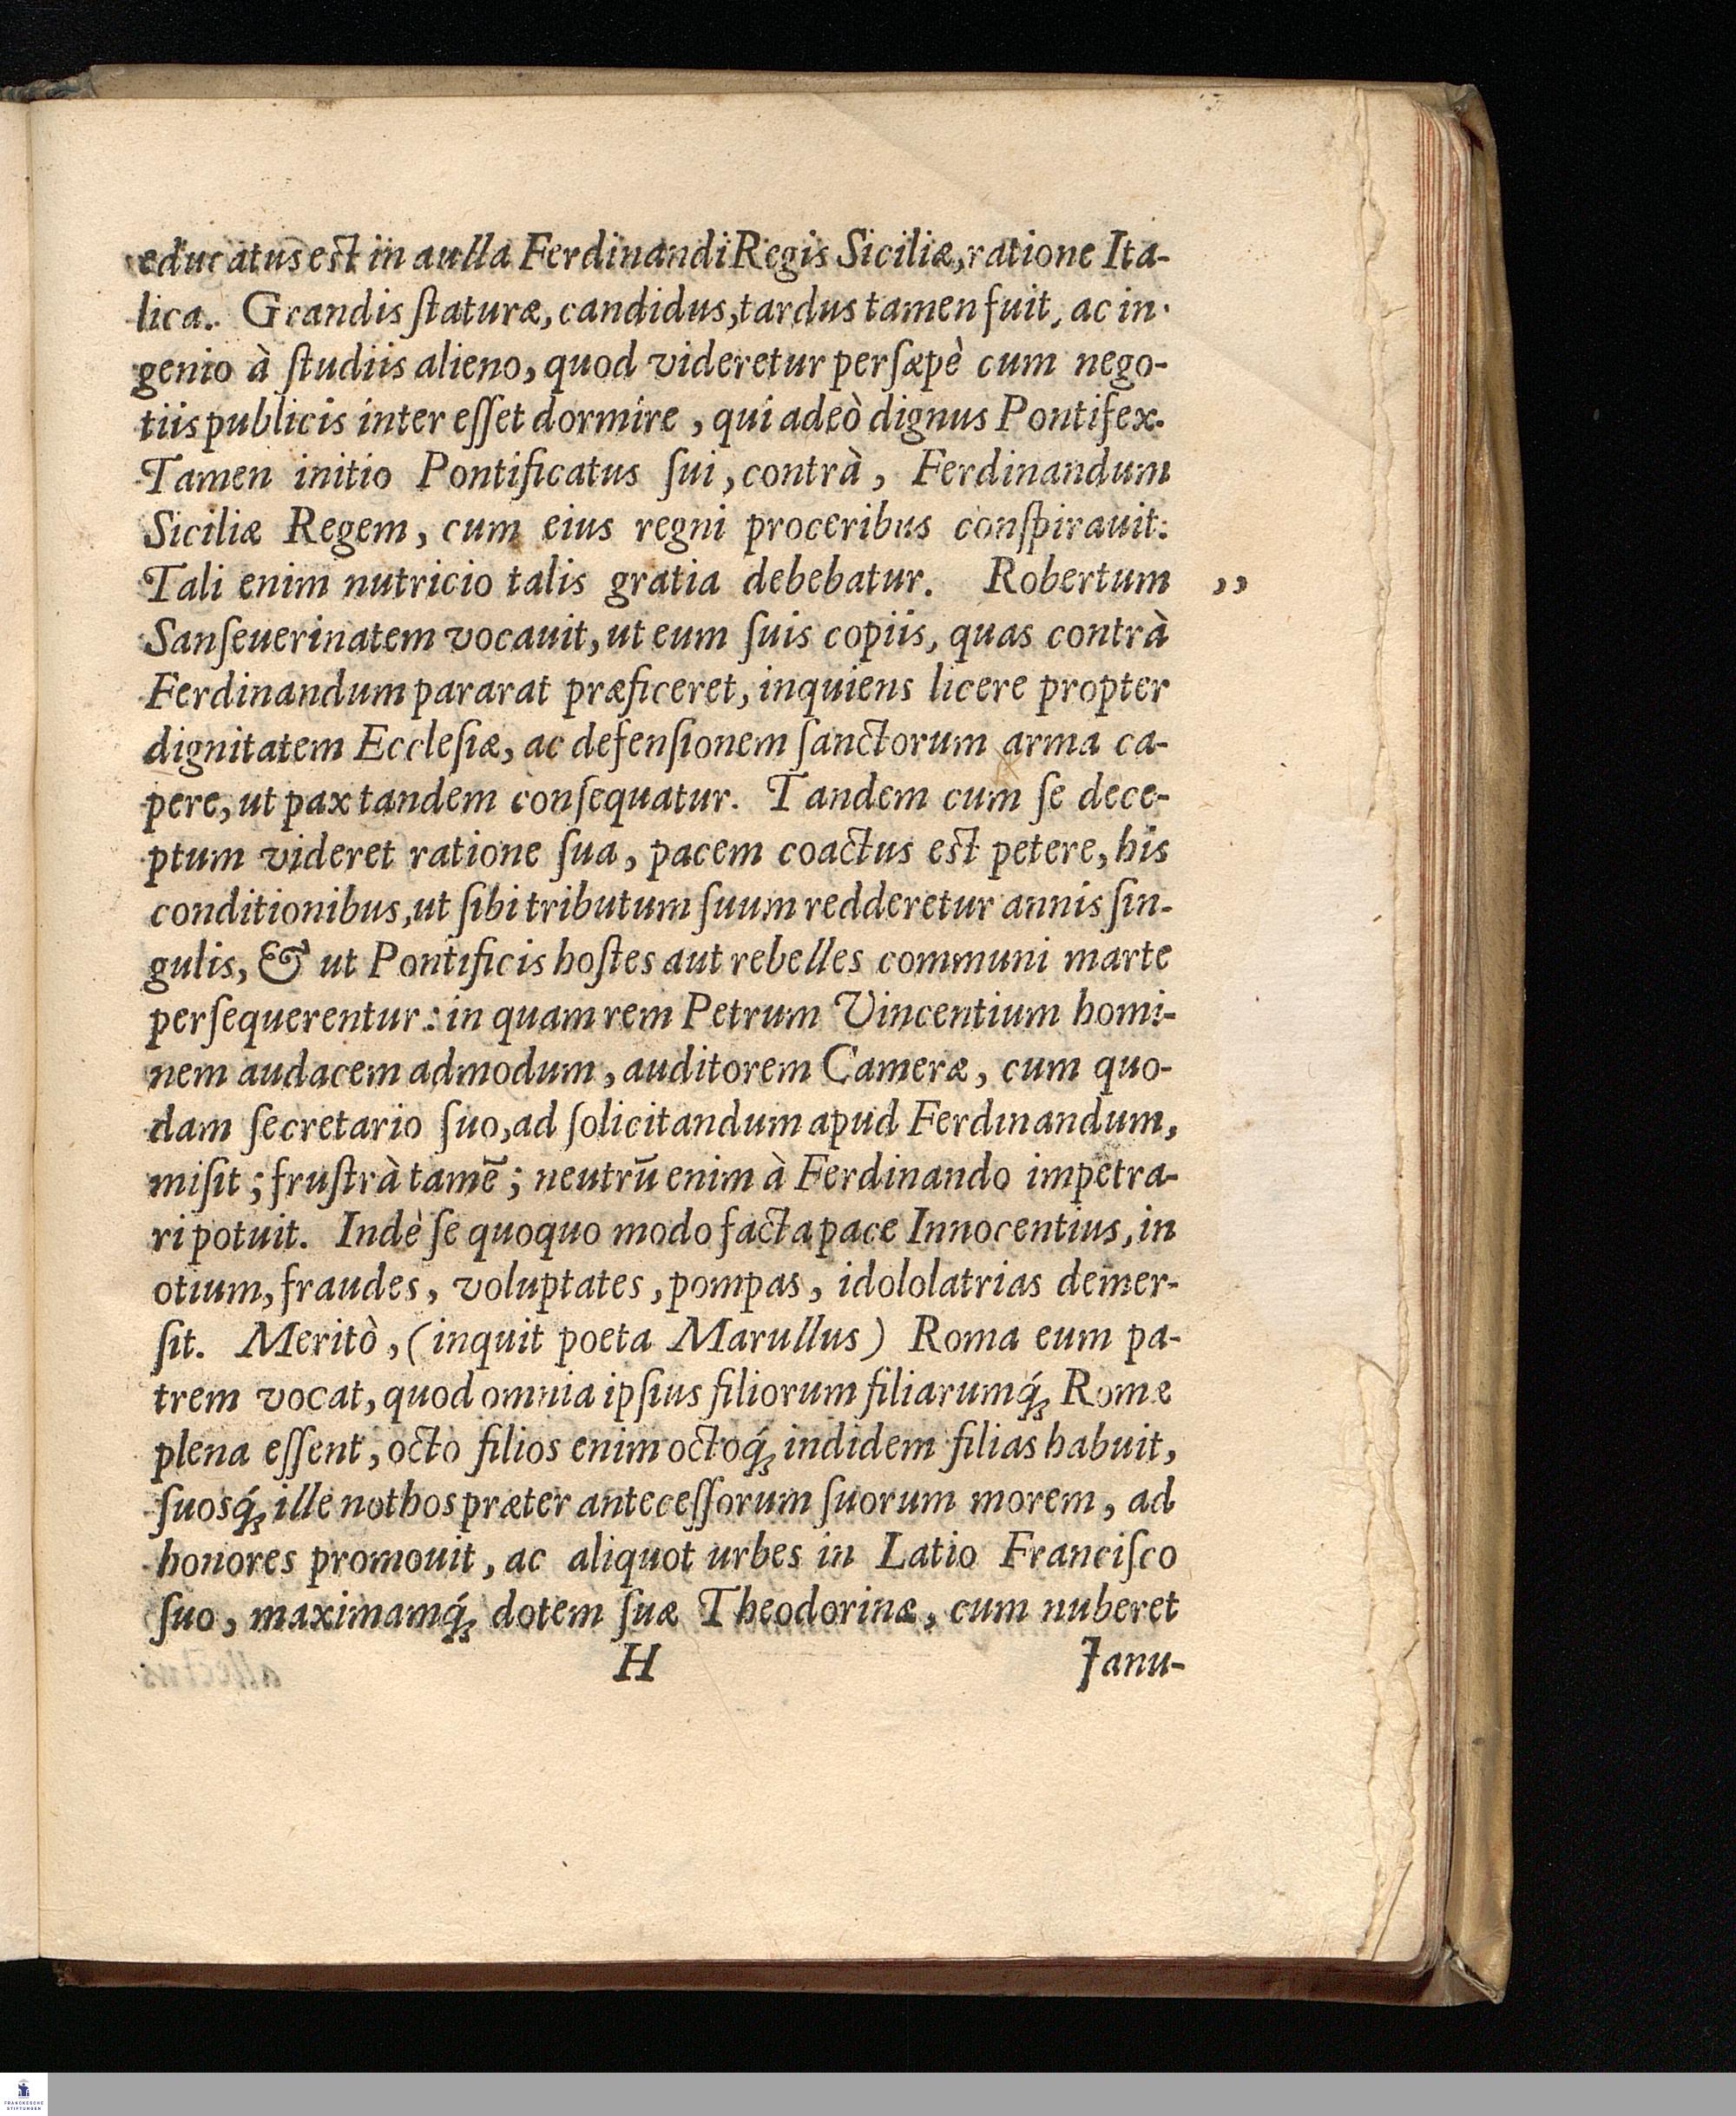 educatus est in aulla Ferdinandi Regis Siciliæ, ratione Ita-
lica. Grandis ſtaturæ, candidus, tardus tamen fuit, ac in-
genio à ſtudiis alieno, quod videretur perſæpè cum nego-
tiis publicis inter eſſet dormire, qui adeò dignus Pontifex.
Tamen initio Pontificatus ſui, contrà, Ferdinandum
Siciliæ Regem, cum eius regni proceribus conſpirauit:
Tali enim nutricio talis gratia debebatur. Robertum ,,
Sanſeuerinatem vocauit, ut eum ſuis copiis, quas contrà
Ferdinandum pararat præficeret, inquiens licere propter
dignitatem Eccleſiæ, ac defenſionem ſanctorum arma ca-
pere, ut pax tandem conſequatur. Tandem cum ſe dece-
ptum videret ratione ſua, pacem coactus est petere, his
conditionibus, ut ſibi tributum ſuum redderetur annis ſin-
gulis, & ut Pontificis hoſtes aut rebelles communi marte
perſequerentur: in quam rem Petrum Vincentium homi-
nem audacem admodum, auditorem Cameræ, cum quo-
dam ſecretario ſuo, ad ſolicitandum apud Ferdinandum,
miſit; fruſtrà tamē; neutrū enim à Ferdinando impetra-
ri potuit. Indè ſe quoquo modo facta pace Innocentius, in
otium, fraudes, voluptates, pompas, idololatrias demer-
ſit. Meritò, (inquit poeta Marullus) Roma eum pa-
trem vocat, quod omnia ipſius filiorum filiarumq́; Romæ
plena eſſent, octo filios enim octoq́; indidem filias habuit,
ſuosq́; ille nothos præter anteceſſorum ſuorum morem, ad
honores promouit, ac aliquot urbes in Latio Franciſco
ſuo, maximamq́; dotem ſuæ Theodorinæ, cum nuberet
H Janu-
FRANCKESCHE
STIFTUNGEN